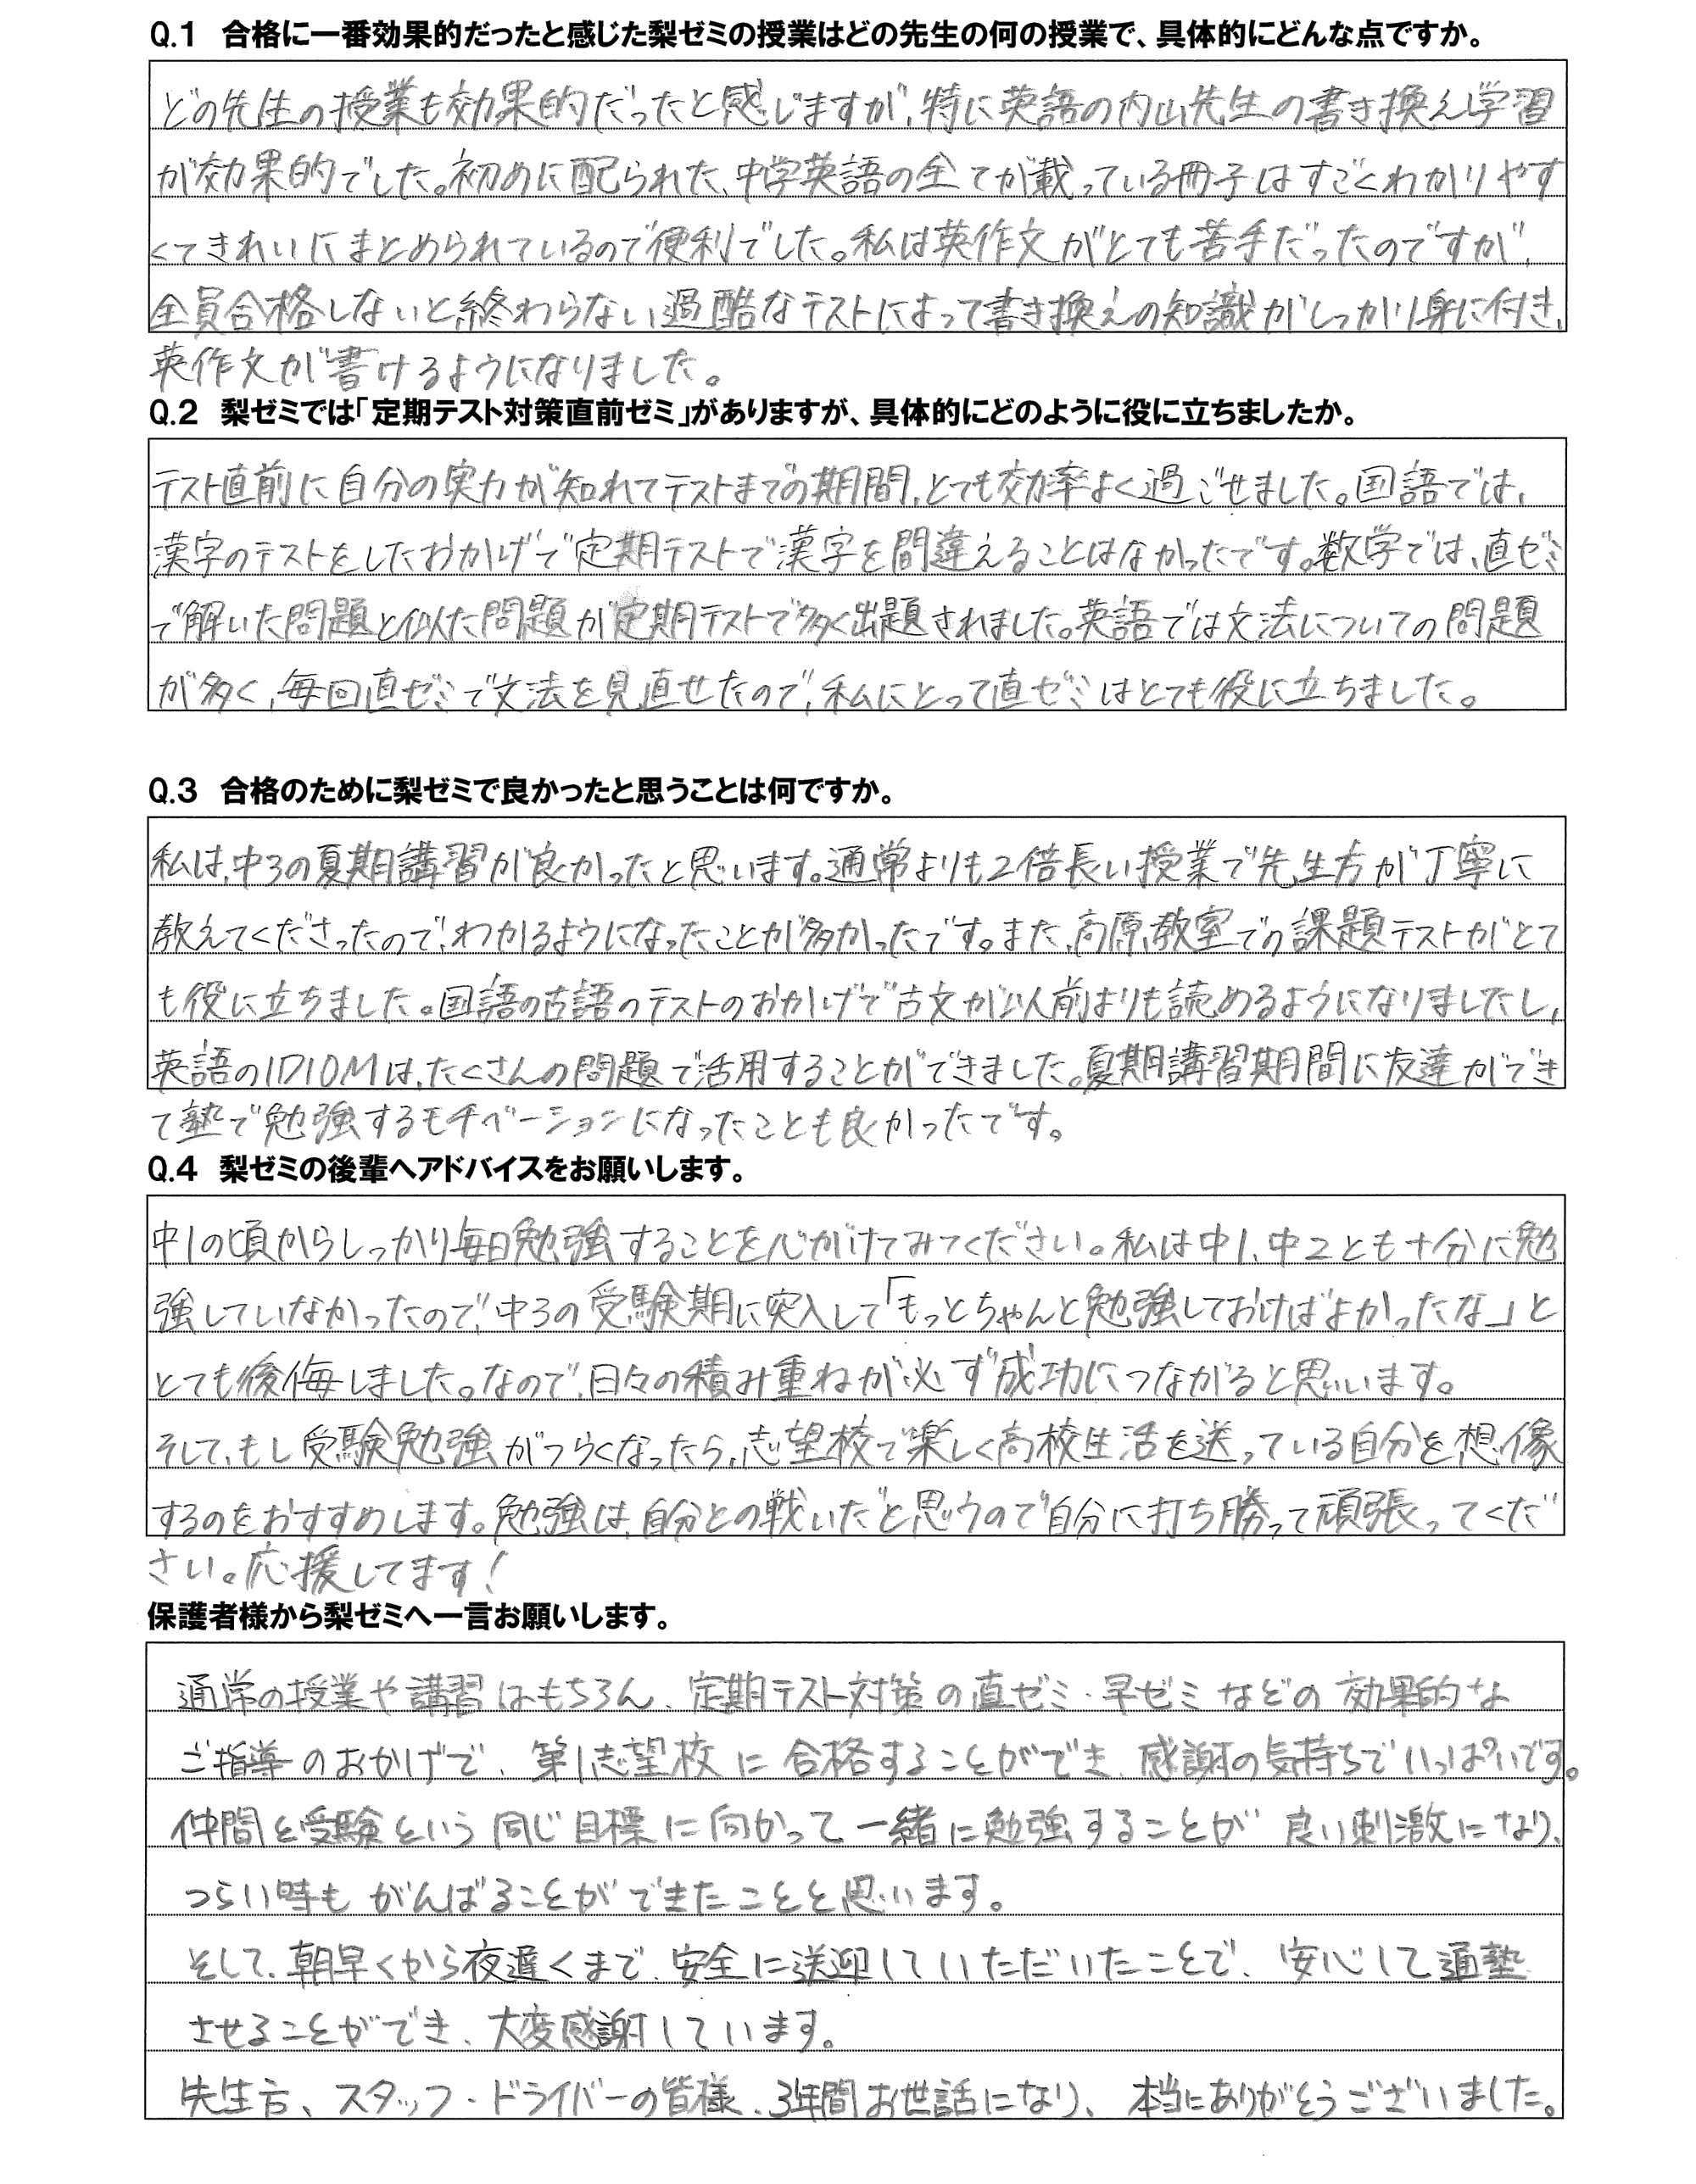 Q.1 合格に一番効果的だったと感じた梨ゼミの授業はどの先生の何の授業で、具体的にどんな点ですか。
どの先生の授業も効果的だったと感じますが、特に英語の内山先生の書き換え学習
が効果的でした。初めに配られた、中学英語の全てが載っている冊子はすごくわかりやす
くてきれいにまとめられているので便利でした。私は英作文がとても苦手だったのですが、
全員合格しないと終わらない過酷なテストによって書き換えの知識がしっかり身に付き、
英作文が書けるようになりました。
Q.2 梨ゼミでは「定期テスト対策直前ゼミ」がありますが、具体的にどのように役に立ちましたか。
テスト直前に自分の実力が知れてテストまでの期間、とても効率よく過ごせました。国語では、
漢字のテストをしたおかげで定期テストで漢字を間違えることはなかったです。数学では、直ゼミ
で解いた問題と似た問題が定期テストで多く出題されました。英語では文法についての問題
が多く、毎回直ゼミで文法を見直せたので、私にとって直ゼミはとても役に立ちました。
Q.3 合格のために梨ゼミで良かったと思うことは何ですか。
私は、中3の夏期講習が良かったと思います。通常よりも2倍長い授業で先生方が丁寧に
教えてくださったので、わかるようになったことが多かったです。また、高原教室での課題テストがとて
も役に立ちました。国語の古語のテストのおかげで古文が以前よりも読めるようになりましたし、
英語のIDIOMは、たくさんの問題で活用することができました。夏期講習期間に友達ができ
て塾で勉強するモチベーションになったことも良かったです。
Q.4 梨ゼミの後輩へアドバイスをお願いします。
中1の頃からしっかり毎日勉強することを心がけてみてください。私は中1、中2とも十分に勉
強していなかったので、中3の受験期に突入して「もっとちゃんと勉強しておけばよかったな」と
とても後悔しました。なので、日々の積み重ねが必ず成功につながると思います。
そして、もし受験勉強がつらくなったら、志望校で楽しく高校生活を送っている自分を想像
するのをおすすめします。勉強は、自分との戦いだと思うので自分に打ち勝って頑張ってくだ
さい。応援してます!
保護者様から梨ゼミへ一言お願いします。
通常の授業や講習はもちろん、定期テスト対策の直ゼミ・早ゼミなどの効果的な
ご指導のおかげで、第1志望校に合格することができ、感謝の気持ちでいっぱいです。
仲間と受験という同じ目標に向かって一緒に勉強することが良い刺激になり、
つらい時もがんばることができたことと思います。
そして、朝早くから夜遅くまで、安全に送迎していただいたことで、安心して通塾
させることができ、大変感謝しています。
先生方、スタッフ・ドライバーの皆様、3年間お世話になり、本当にありがとうございました。